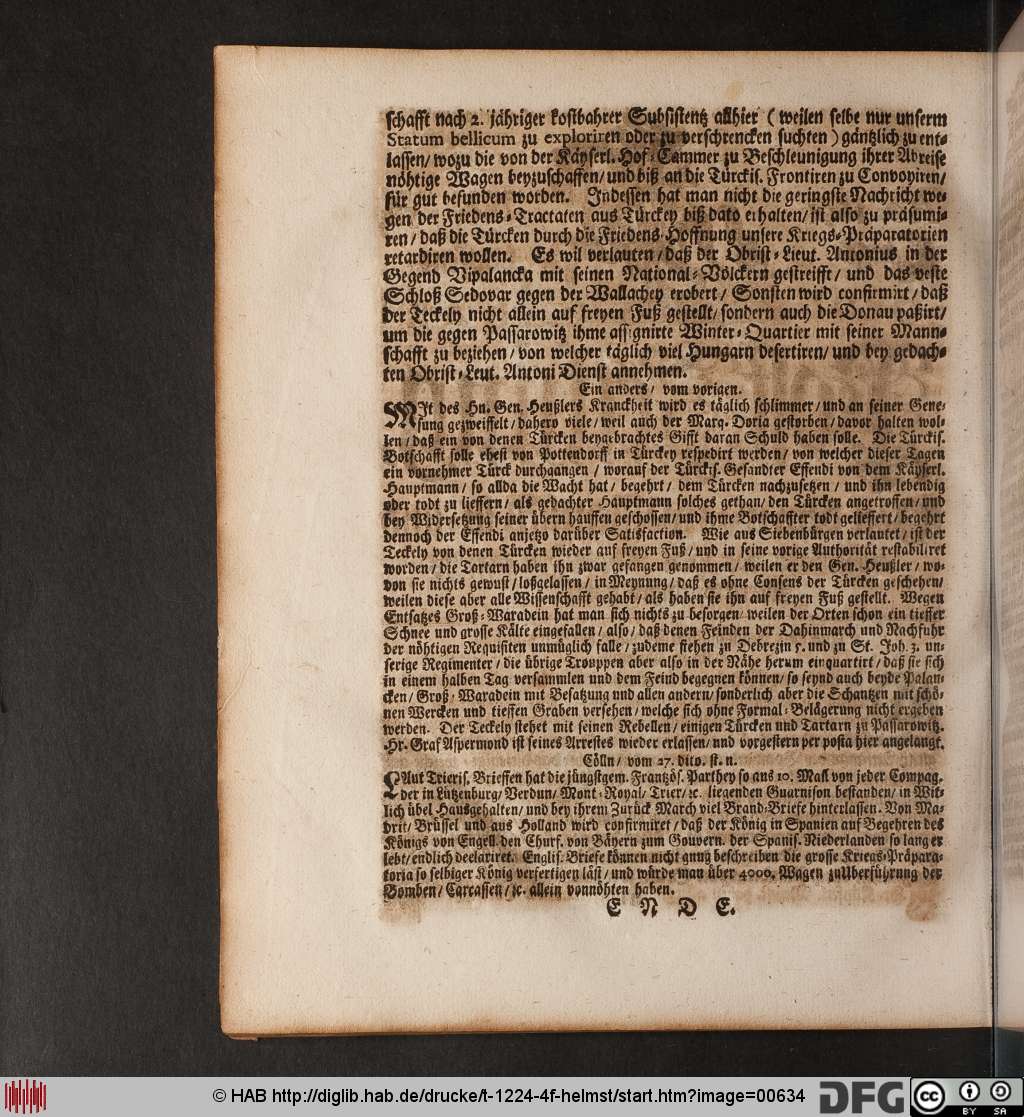 schafft nach 2. jähriger kostbahrer Subsistentz allhier ( weilen selbe nur unserm
Statum bellicum zu exploriren oder zu verschrencken suchten ) gäntzlich zu ent-
lassen/ wozu die von der Käyserl. Hof-Cammer zu Beschleunigung ihrer Abreise
nöhtige Wagen beyzuschaffen/ und biß an die Türckis. Frontiren zu Convoyiren/
für gut befunden worden. Indessen hat man nicht die geringste Nachricht we-
gen der Friedens-Tractaten aus Türckey biß dato erhalten/ ist also zu präsumi-
ren/ daß die Türcken durch die Friedens-Hoffnung unsere Kriegs-Präparatorien
retardiren wollen. Es wil verlauten/ daß der Obrist-Lieut. Antonius in der
Gegend Vipalancka mit seinen National-Völckern gestreifft/ und das veste
Schloß Sedovar gegen der Wallachey erobert/ Sonsten wird confirmirt/ daß
der Teckely nicht allein auf freyen Fuß gestellt/ sondern auch die Donau paßirt/
um die gegen Passarowitz ihme assignirte Winter-Quartier mit seiner Mann-
schafft zu beziehen/ von welcher täglich viel Hungarn desertiren/ und bey gedach-
ten Obrist-Leut. Antoni Dienst annehmen.
Ein anders/ vom vorigen.
MIt des Hn. Gen. Heußlers Kranckheit wird es täglich schlimmer/ und an seiner Gene-
sung gezweiffelt/ dahero viele/ weil auch der Marq. Doria gestorben/ davor halten wol-
len/ daß ein von denen Türcken beygebrachtes Gifft daran Schuld haben solle. Die Türckis.
Botschafft solle ehest von Pottendorff in Türckey respedirt werden/ von welcher dieser Tagen
ein vornehmer Türck durchgangen/ worauf der Türckis. Gesandter Effendi von dem Käyserl.
Hauptmann/ so allda die Wacht hat/ begehrt/ dem Türcken nachzusetzen/ und ihn lebendig
oder todt zu lieffern/ als gedachter Hauptmann solches gethan/ den Türcken angetroffen/ und
bey Widersetzung seiner übern hauffen geschossen/ und ihme Botschaffter todt geliefert/ begehrt
dennoch der Effendi anjetzo darüber Satisfaction. Wie aus Siebenbürgen verlautet/ ist der
Teckely von denen Türcken wieder auf freyen Fuß/ und in seine vorige Authorität restabiliret
worden/ die Tartarn haben ihn zwar gefangen genommen/ weilen er den Gen. Heußler/ wo-
von sie nichts gewust/ loßgelassen/ in Meynung/ daß es ohne Consens der Türcken geschehen/
weilen diese aber alle Wissenschafft gehabt/ als haben sie ihn auf freyen Fuß gestellt. Wegen
Entsatzes Groß-Waradein hat man sich nichts zu besorgen/ weilen der Orten schon ein tieffer
Schnee und grosse Kälte eingefallen/ also/ daß denen Feinden der Dahinmarch und Nachfuhr
der nöhtigen Requisiten unmüglich falle/ zudeme stehen zu Debrezin 5. und zu St. Joh. 3. un-
serige Regimenter/ die übrige Trouppen aber also in der Nähe herum einquartirt/ daß sie sich
in einem halben Tag versammlen und dem Feind begegnen können/ so seynd auch beyde Palan-
cken/ Groß-Waradein mit Besatzung und allen andern/ sonderlich aber die Schantzen mit schö-
nen Wercken und tieffen Graben versehen/ welche sich ohne Formal-Belägerung nicht ergeben
werden. Der Teckely stehet mit seinen Rebellen/ einigen Türcken und Tartarn zu Passarowitz.
Hr. Graf Aspermond ist seines Arrestes wieder erlassen/ und vorgestern per posta hier angelangt.
Cölln/ vom 27. dito. st. n.
LAut Trieris. Brieffen hat die jüngstgem. Frantzös. Parthey so aus 10. Mañ von jeder Compag.
der in Lützenburg/ Verdun/ Mont-Royal/ Trier/ ꝛc. liegenden Guarnison bestanden/ in Wit-
lich übel Hausgehalten/ und bey ihrem Zurück March viel Brand-Briefe hinterlassen. Von Ma-
drit/ Brüssel und aus Holland wird confirmiret/ daß der König in Spanien auf Begehren des
Königs von Engell. den Churf. von Bäyern zum Gouvern. der Spanis. Niederlanden so lang er
lebt/ endlich declariret. Englis. Briefe können nicht gnug beschreiben die grosse Kriegs-Präpara-
toria so selbiger König verfertigen läst/ und würde man über 4000. Wagen zu Uberführung der
Bomben/ Carcassen/ ꝛc. allein vonnöhten haben.
E N D E.
© HAB http://diglib.hab.de/drucke/t-1224-4f-helmst/start.htm?image=00634
DFG
cc BY SA